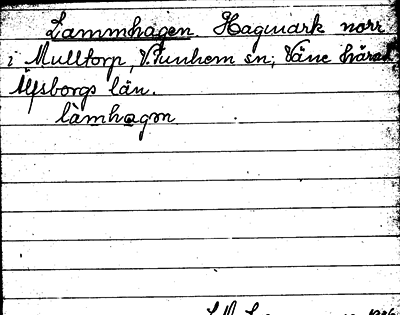 Lammhagen. Hagmark norr
i Mulltorp, V. Tunhem sn, Väne härad
Älfsborgs län.
làmhagm